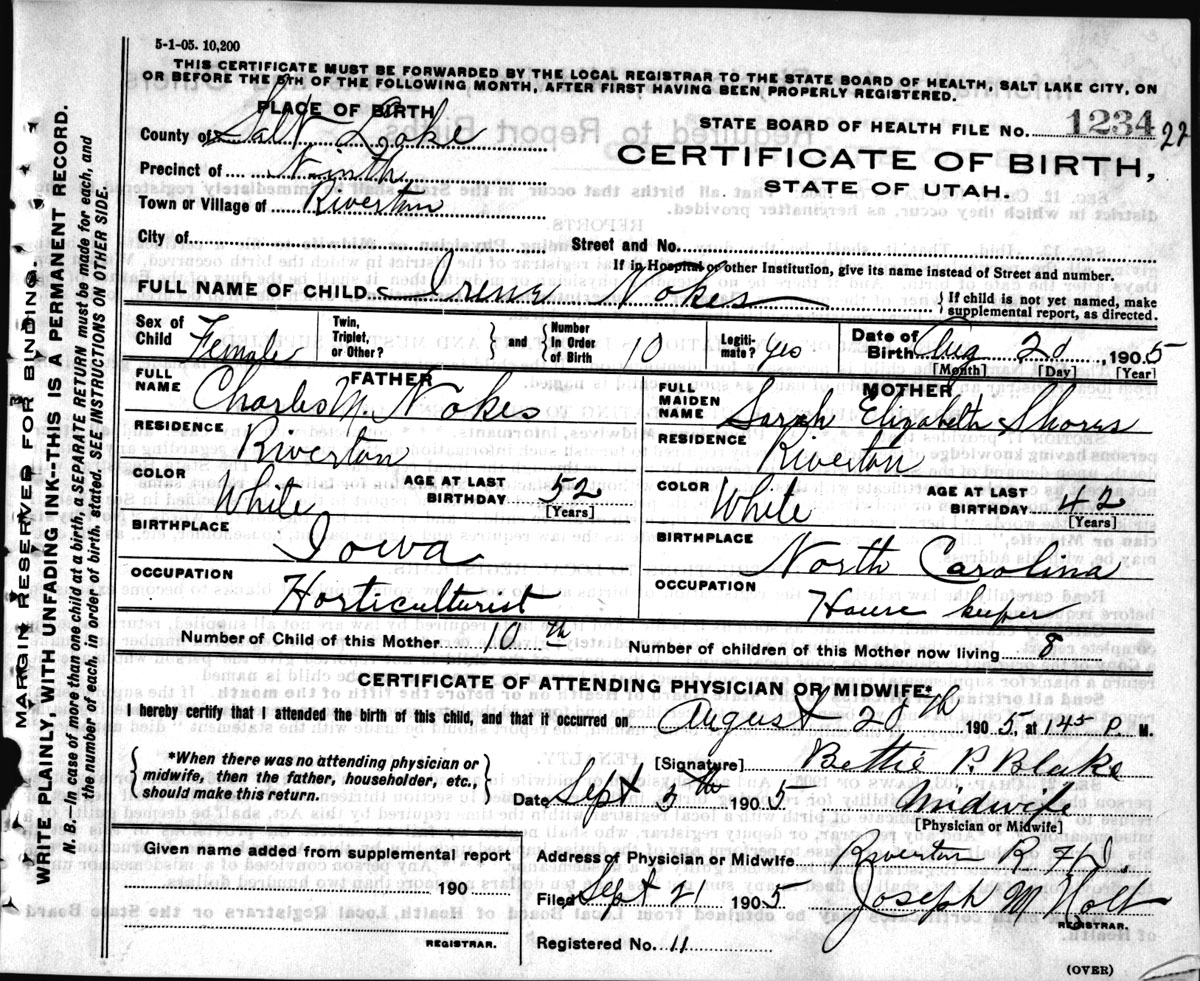 5-1-05. 10,200
THIS CERTIFICATE MUST BE FORWARDED BY THE LOCAL REGISTRAR TO THE STATE BOARD OF HEALTH, SALT LAKE CITY, ON
OR BEFORE THE 5TH OF THE FOLLOWING MONTH, AFTER FIRST HAVING BEEN PROPERLY REGISTERED.
PLACE OF BIRTH
County of Salt Lake
Precinct of Ninth
Town or Village of Riverton
STATE BOARD OF HEALTH FILE No. 1234 22
CERTIFICATE OF BIRTH,
STATE OF UTAH.
City of Street and No.
If in Hospital or other Institution, give its name instead of Street and number.
FULL NAME OF CHILD Irene Nokes { If child is not yet named, make supplemental report, as directed.
Sex of Child Female Twin, Triplet, or Other? } and { Number In Order of Birth 10 Legiti- mate? yes Date of Birth Aug 20 1905
[Month] [Day] [Year]
FATHER
FULL NAME Charles M. Nokes
RESIDENCE Riverton
COLOR White AGE AT LAST BIRTHDAY 52
[Years]
BIRTHPLACE Iowa
OCCUPATION Horticulturist
MOTHER
FULL MAIDEN NAME Sarah Elizabeth Shores
RESIDENCE Riverton
COLOR White AGE AT LAST BIRTHDAY 42
[Years]
BIRTHPLACE North Carolina
OCCUPATION House keeper
Number of Child of this Mother 10th Number of children of this Mother now living 8
CERTIFICATE OF ATTENDING PHYSICIAN OR MIDWIFE*
I hereby certify that I attended the birth of this child, and that it occurred on August 20th 1905, at 145 P M.
{ *When there was no attending physician or
midwife, then the father, householder, etc.,
should make this return. }
[Signature] Bettie P. Blake
Date Sept 5th 1905 Midwife
[Physician or Midwife]
Given name added from supplemental report
190
REGISTRAR.
Address of Physician or Midwife Riverton R F D
Filed Sept 21 1905 Joseph M Holt
REGISTRAR.
Registered No. 11
(OVER)
MARGIN RESERVED FOR BINDING.
WRITE PLAINLY, WITH UNFADING INK--THIS IS A PERMANENT RECORD.
N. B.--In case of more than one child at a birth, a SEPARATE RETURN must be made for each, and
the number of each, in order of birth, stated. SEE INSTRUCTIONS ON OTHER SIDE.